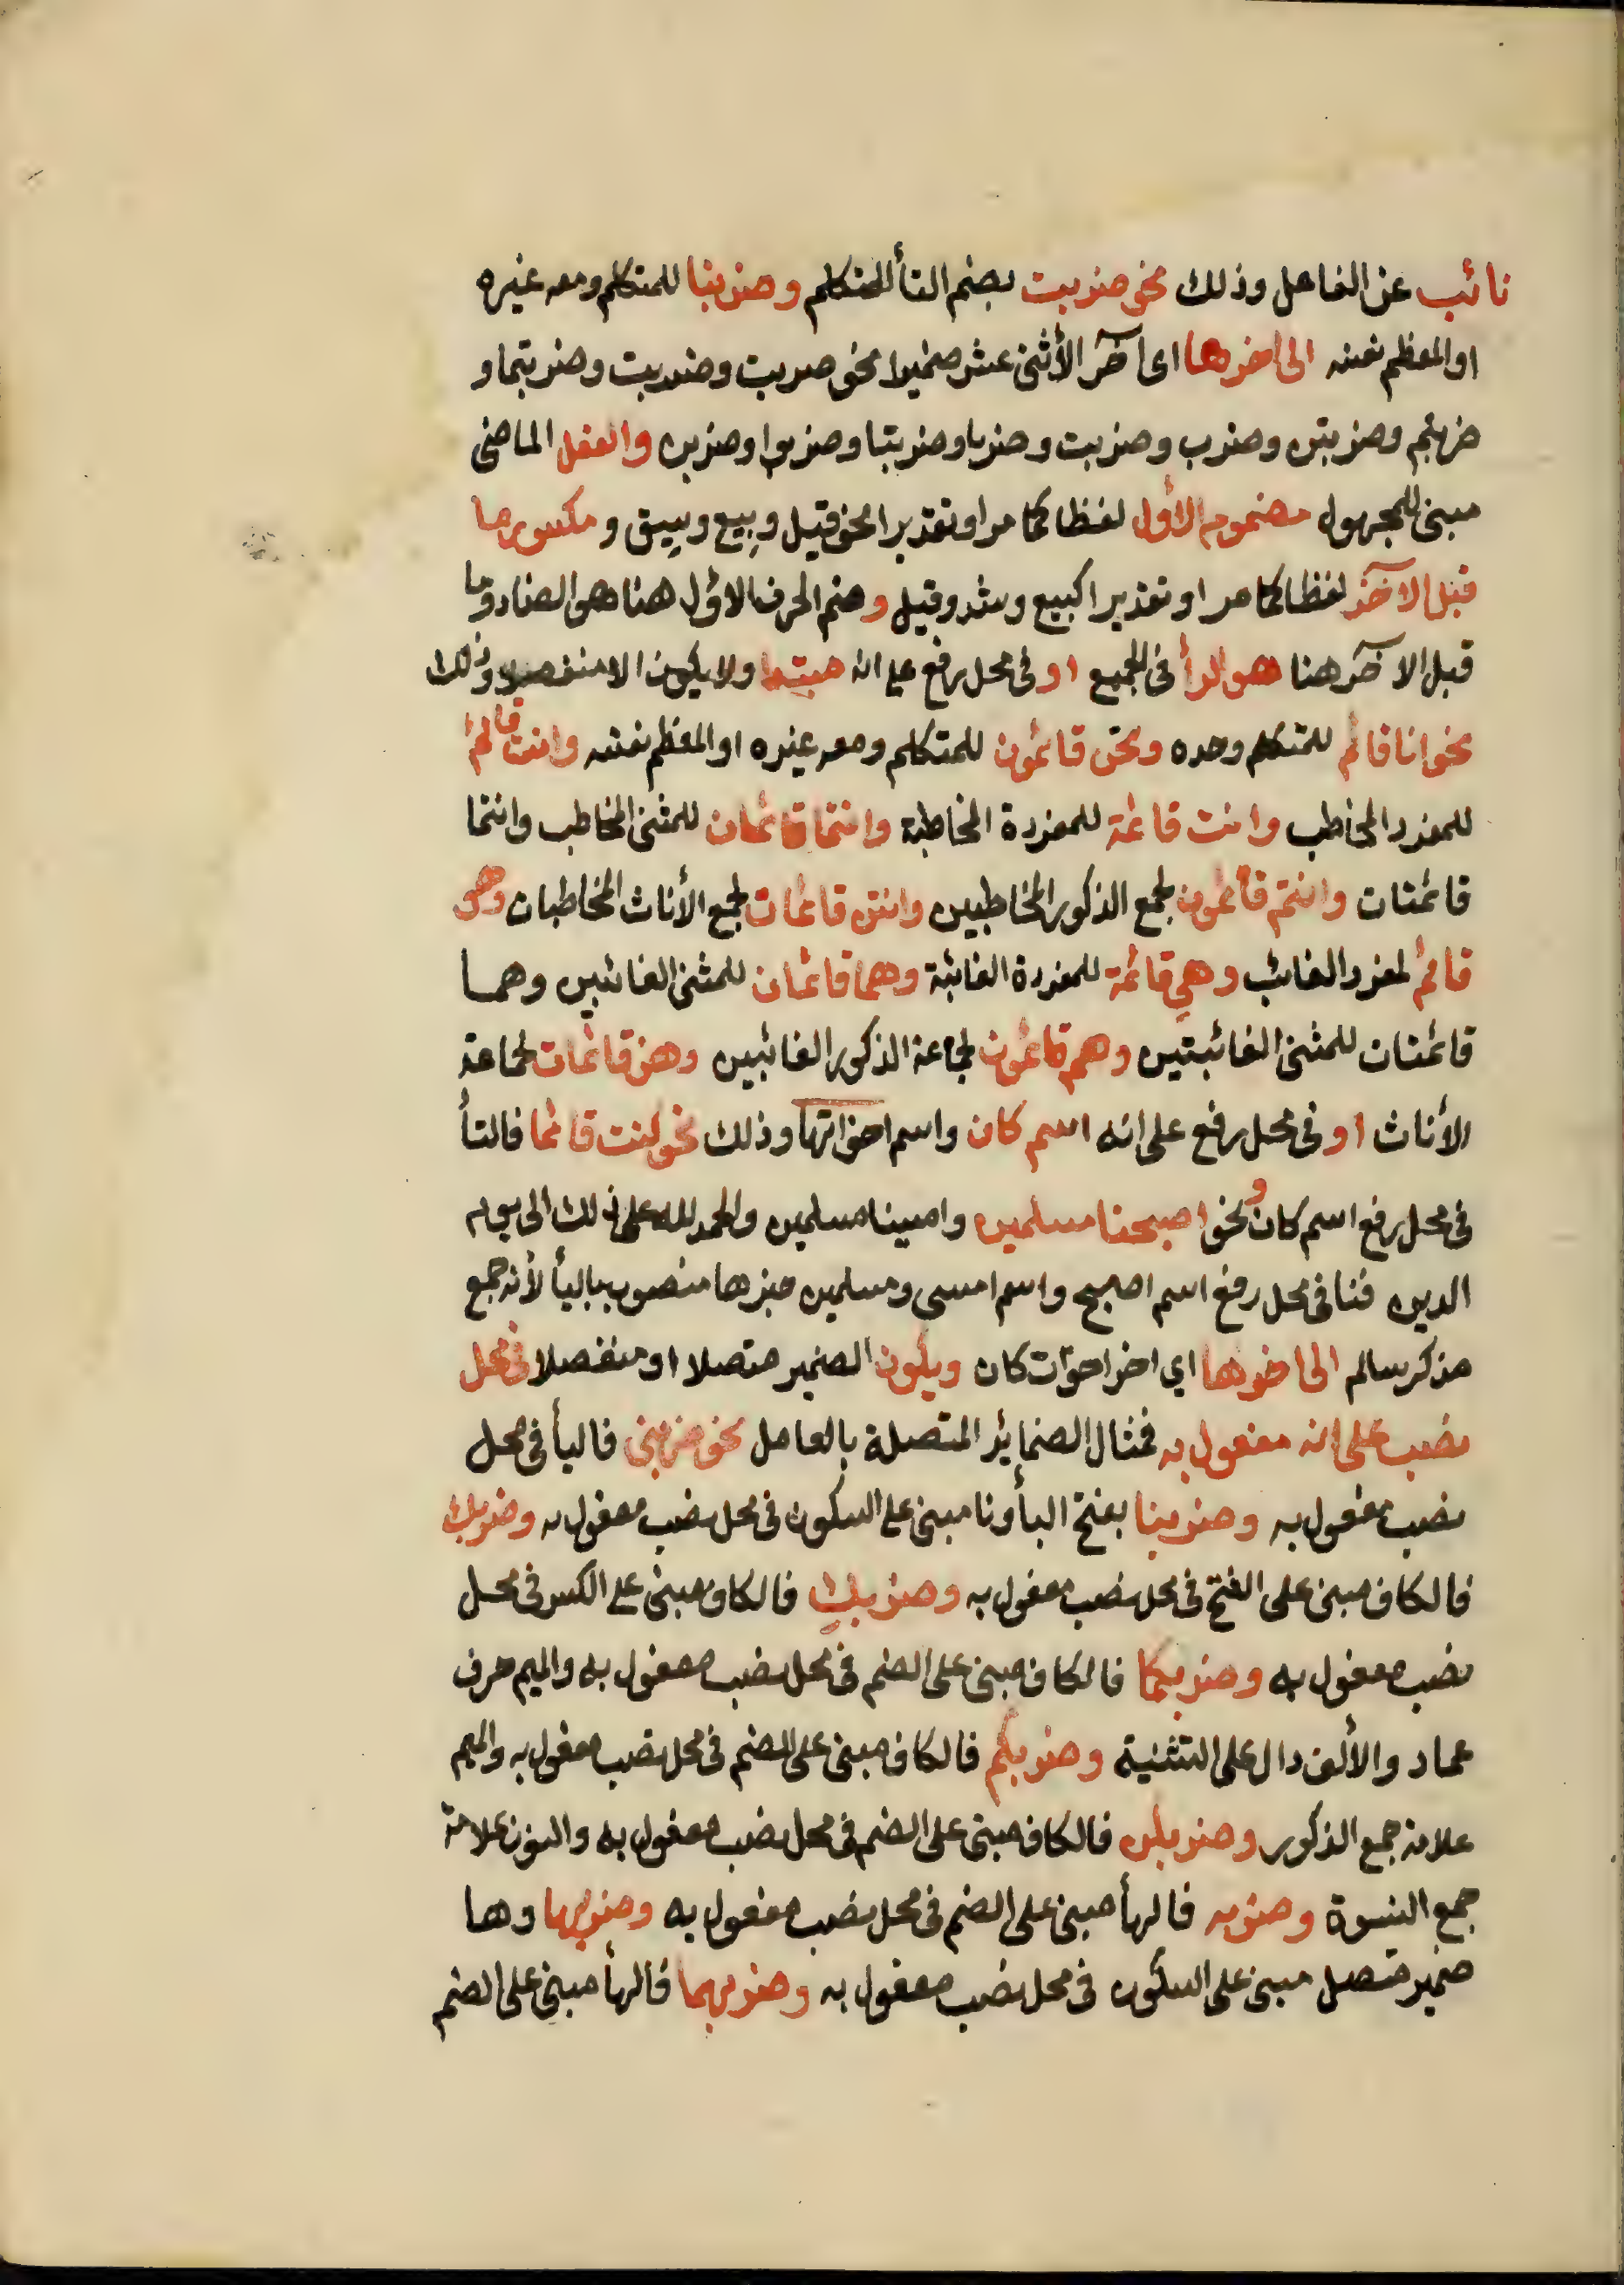 نائب عن الفاعل وذلك نحو ضربت بضم التأ للمتكلم وضربنا للمتكلم ومعه غيره
او المعظم نفسه الى اخرها اى آخر الأثنى عشر ضميرا نحو ضربت وضربت وضربتما و
ضربتم وضربتن وضرب وضربت وضربا وضربتا وضربوا وضربن والفعل الماضى
مبنى للمجهول مضموم الأول لفظا كما مر او تقديرا نحو قيل وبِيع وسِيق ومكسور ما
قبل الآخر لفظا كما مر او تقديرا كبيع وشد وقيل وضم الحرف الاول هنا هو الضاد وما
قبل الآخر هنا هو الرأ فى الجميع او فى محل رفع على انه مبتدا ولا يكون الا منفصلا وذلك
نحو انا قائم للمتكلم وحده ونحن قائمون للمتكلم ومعه غيره او المعظم نفسه وانت قائم
للمفرد المخاطب وانت قائمة للمفردة المخاطبة وانتما قائمان للمثنى المخاطب وانتما
قائمتان وانتم قائمون لجمع الذكور المخاطبين وانتن قائمات لجمع الأناث المخاطبات وهو
قائم لمفرد الغائب وهي قائمة للمفردة الغائبة وهما قائمان للمثنى الغائبين وهما
قائمتان للمثنى الغائبتين وهم قائمون لجماعة الذكور الغائبين وهن قائمات لجماعة
الأناث او فى محل رفع على انه اسم كان واسم اخواتها وذلك نحو كنت قائما فالتأ
فى محل رفع اسم كان ونحو اصبحنا مسلمين وامسينا مسلمين والحمد لله على ذلك الى يوم
الدين فنا فى محل رفع اسم اصبح واسم امسى ومسلمين خبرها منصوب باليأ لأنه جمع
مذكر سالم الى اخرها اي اخر اخوات كان ويكون الضمير متصلا او منفصلا فى محل
نصب على انه مفعول به فمثال الضمائر المتصلة بالعامل نحو ضربنى فاليأ فى محل
نصب مفعول به وضربنا بفتح البأ ونا مبنى على السكون فى محل نصب مفعول به وضربك
فالكاف مبنى على الفتح فى محل نصب مفعول به وضربكِ فالكاف مبنى على الكسر فى محل
نصب مفعول به وضربكما فالكاف مبنى على الضم فى محل نصب مفعول به والميم حرف
عماد والألف دال على التثنية وضربكم فالكاف مبنى على الضم فى محل نصب مفعول به والميم
علامة جمع الذكور وضربكن فالكاف مبنى على الضم فى محل نصب مفعول به والنون علامة
جمع النسوة وضربه فالهأ مبنى على الضم فى محل نصب مفعول به وضربها وها
ضمير متصل مبنى على السكون فى محل نصب مفعول به وضربهما فالهأ مبنى على الضم